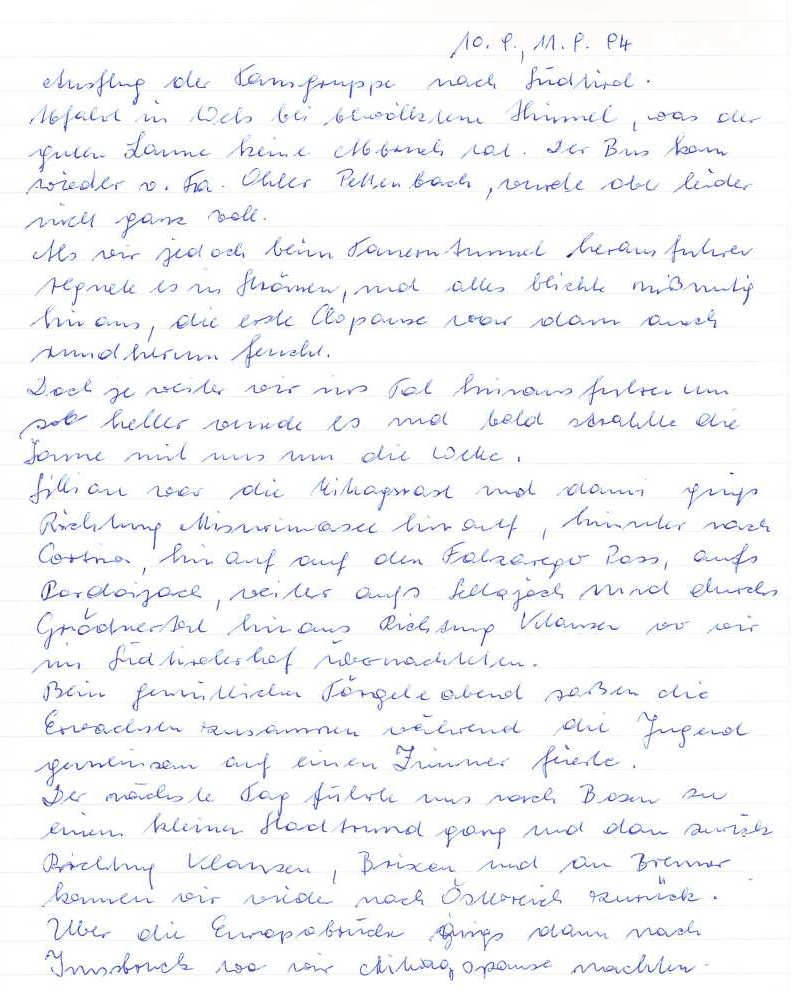 10. 9., 11. 9. 94
Ausflug der Tanzgruppe nach Südtirol.
Abfahrt in Wels bei bewölktem Himmel, was der
guten Laune keine Abbruch tat. Der Bus kam
wieder v. Fa. Ohler Pettenbach, wurde aber leider
nicht ganz voll.
Als wir jedoch beim Tauerntunnel heraus fuhren
regnete es in Strömen, und alles blickte mißmutig
hinaus, die erste Clopause war dann auch
rundherum feucht.
Doch je weiter wir ins Tal hinaus fuhren um
so heller wurde es und bald strahlte die
Sonne mit uns um die Wette.
Sillian war die Mittagsrast und dann gings
Richtung Misurinasee hinauf, hinunter nach
Cortina, hinauf auf den Falzarego Pass, aufs
Pordoijoch, weiter aufs Sellajoch und durchs
Grödnertal hinaus Richtung Klausen wo wir
im Südtirolerhof übernachteten.
Beim gemütlichen Törgeleabend saßen die
Erwachsen zusammen während die Jugend
gemeinsam auf einen Zimmer feierte.
Der nächste Tag führte uns nach Bozen zu
einem kleinen Stadtrundgang und dan zurück
Richtung Klausen, Brixen und am Brenner
kamen wir wieder nach Österreich zurück.
Über die Europabrücke gings dann nach
Innsbruck wo wir Mittagspause machten.